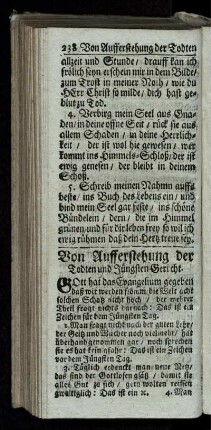 238 Von Aufferstehung der Todten
allzeit und Stunde / drauff kan ich
frölich seyn erschein mir in dem Bilde /
zum Trost in meiner Noth / wie du
HErr Christ so milde / dich hast ge-
blut zu Tod.
4. Verbirg mein Seel aus Gna-
den / in deine offne Seit / rück sie aus
allem Schaden / in deine Herrlich-
keit / der ist wol hie gewesen / wer
kommt ins Himmels-Schloß / der ist
ewig genesen / der bleibt in deinem
Schoß.
5. Schreib meinen Nahmn auffs
beste / ins Buch des Lebens ein / und
bind mein Seel gar feste / ins schöne
Bündelein / dern / die im Himmel
grünen / und für dir leben frey so will ich
ewig rühmen daß dein Hertz treue sey.
Von Aufferstehung der
Todten und Jüngsten Gericht.
GOtt hat das Evangelium gegeben
daß wir werden fromm, die Welt acht
solchen Schatz nicht hoch / der mehrer
Theil fragt nichts darnach: Das ist ein
Zeichen für dem Jüngsten Tag.
2. Man fragt nicht nach der guten Lehr /
der Geitz und Wucher noch vielmehr / hat
überhand genommen gar / noch sprechen
sie es hat kein Gfahr: Das ist ein Zeichen
vor dem Jüngsten Tag.
3. Täglich erdenckt man neue
das sind der Gottlosen / damit sie
alles Gut zu sich / gern wolten reissen
gwaltiglich: Das ist ein ꝛc. 4. Man